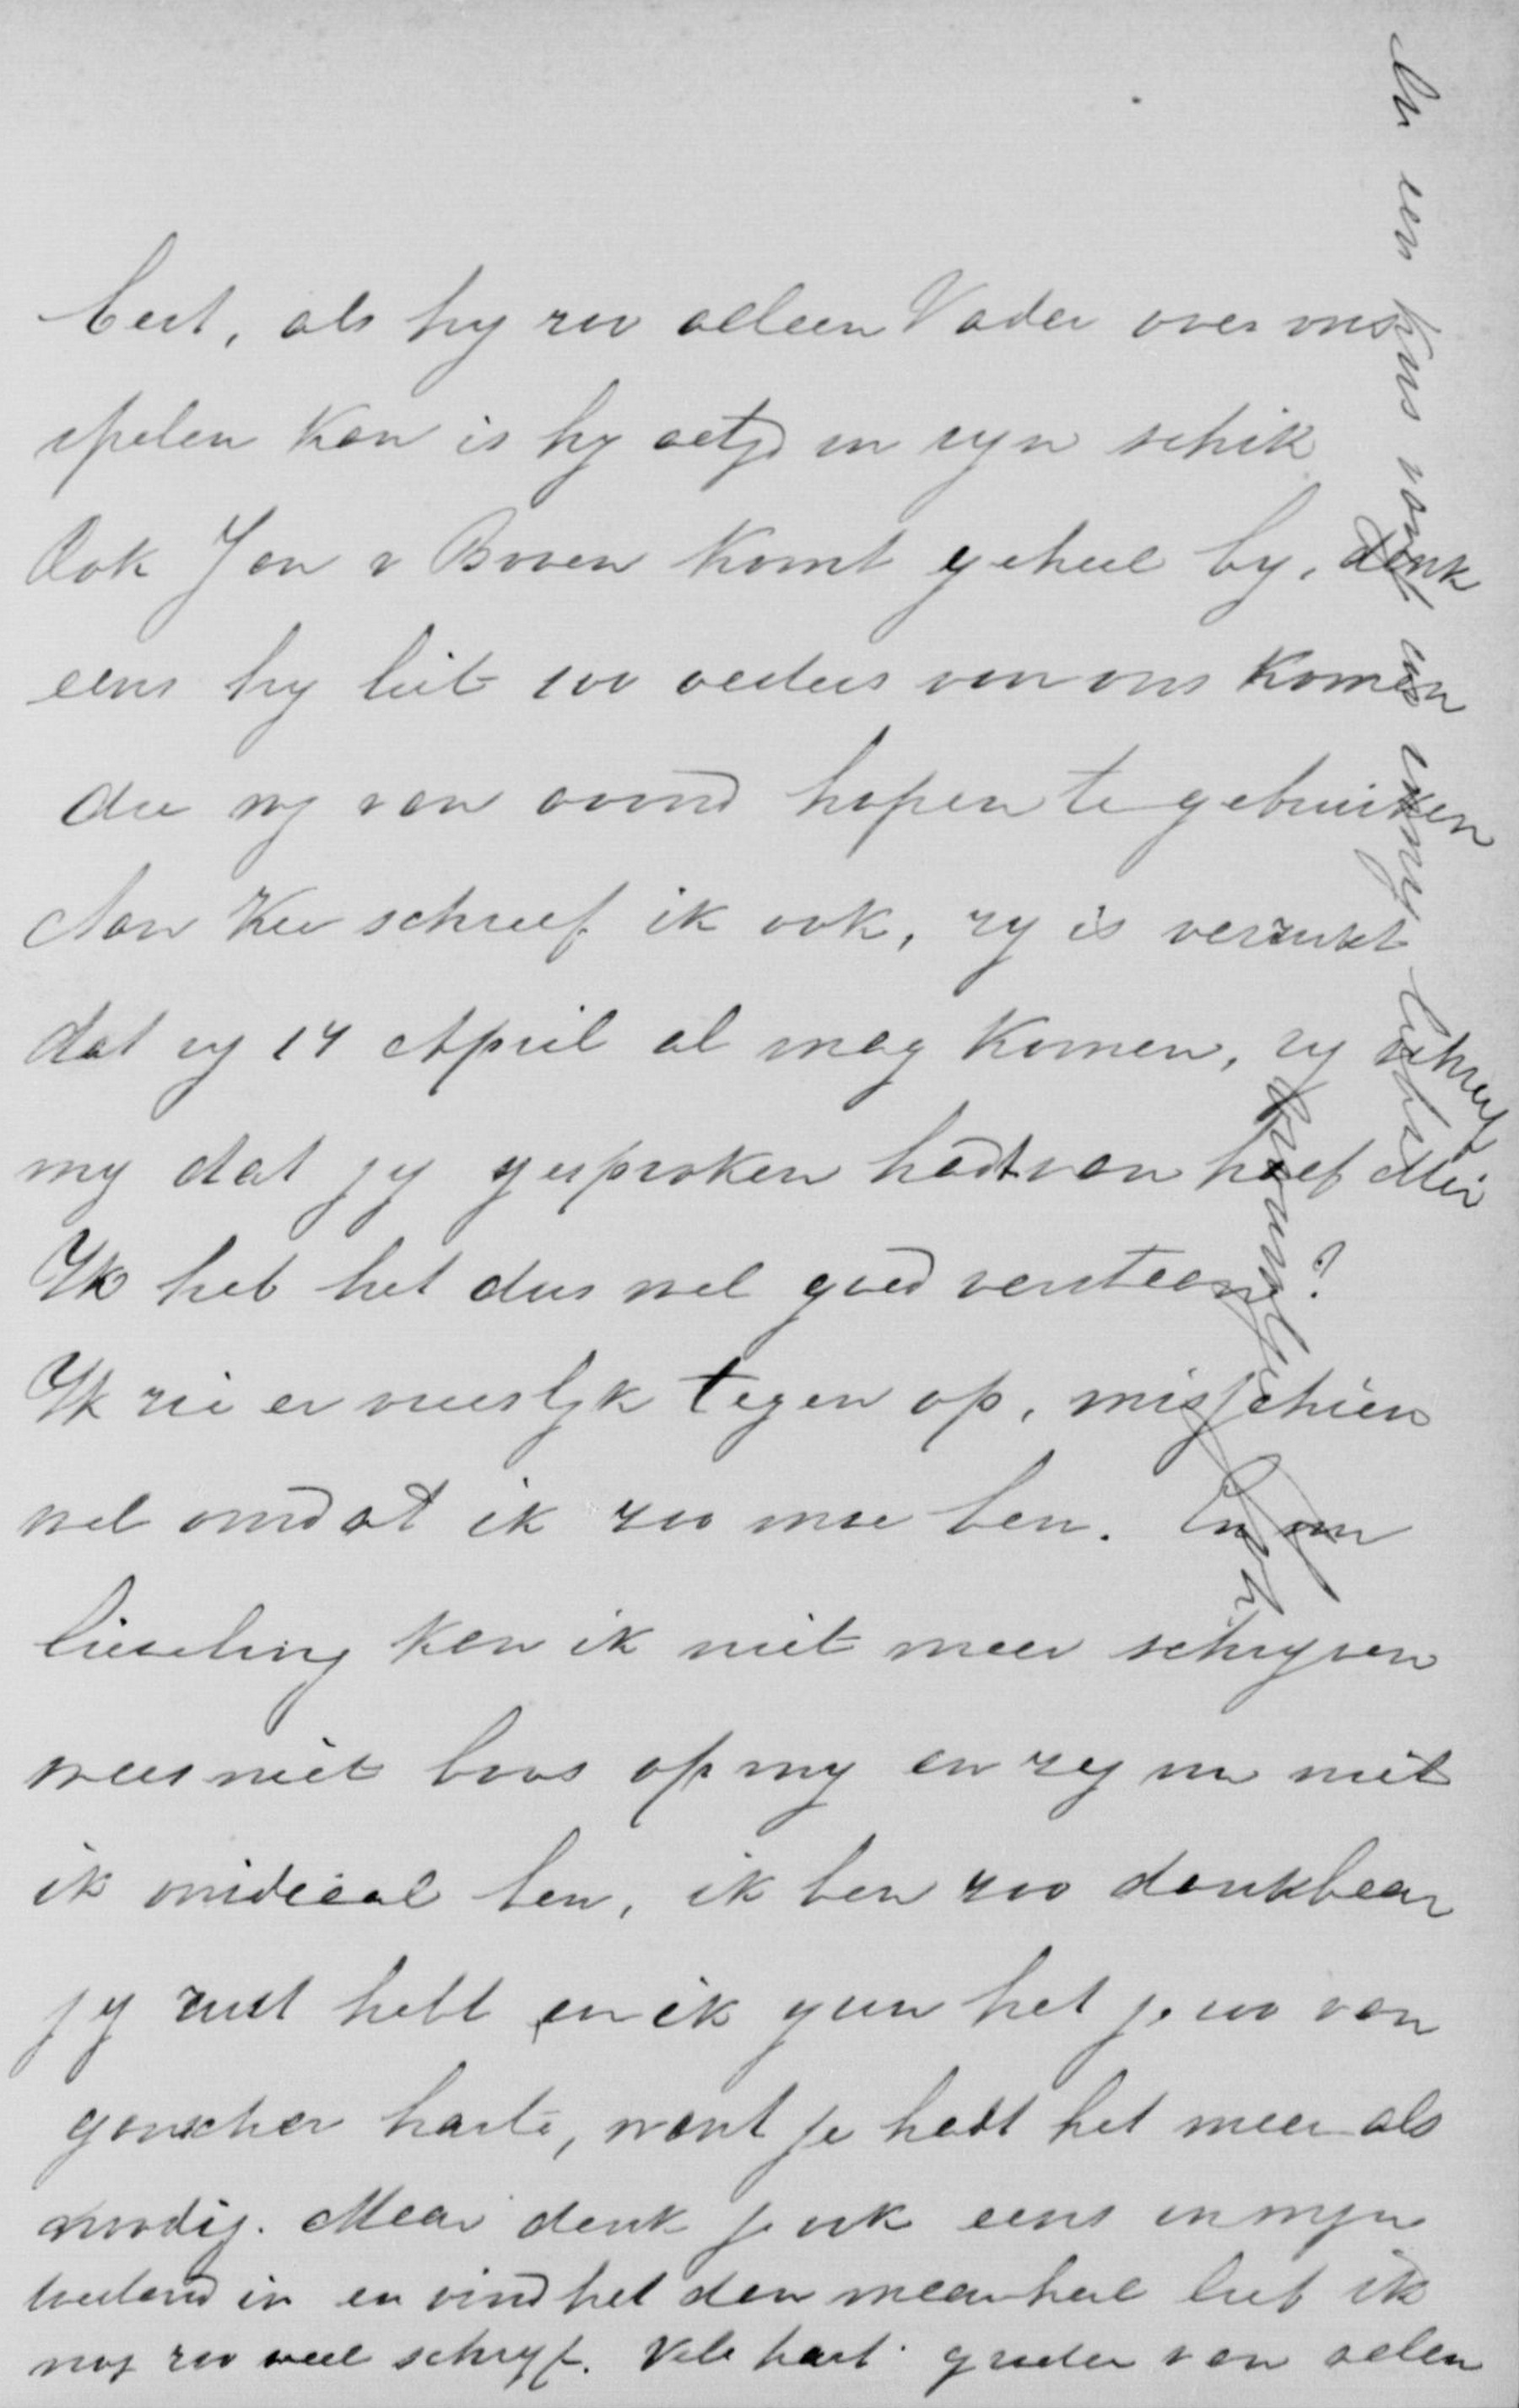 best, als hy zoo alleen Vader over ons
spelen kan is hy altyd in zyn schik
Ook Jan v Boven komt geheel by, denk
eens hy liet zoo van ons komen
die wy van avond hopen te gebruiken
Aan Kee schreef ik ook, zy is verrukt
dat zy 14 April al mag komen, zy schreef
my dat jy gesproken hadt van half Mei
Ik heb het dus wel goed verstaan?
Ik zie er vreeslyk tegen op, misschien
wel omdat ik zoo moe ben. En nu
lieveling kan ik niet meer schryven
wees niet boos op my en zeg nu niet
ik onideaal ben, ik ben zoo dankbaar
jy rust hebt en ik gun het je zoo van
ganscher harte, want je hadt het meer als
noodig. Maar denk je ook eens in myn
toestand in en vind het dan maar heel lief ik
nog zoo veel schryf. Vele hart groeten van allen
en een kus van uw innig liefh.